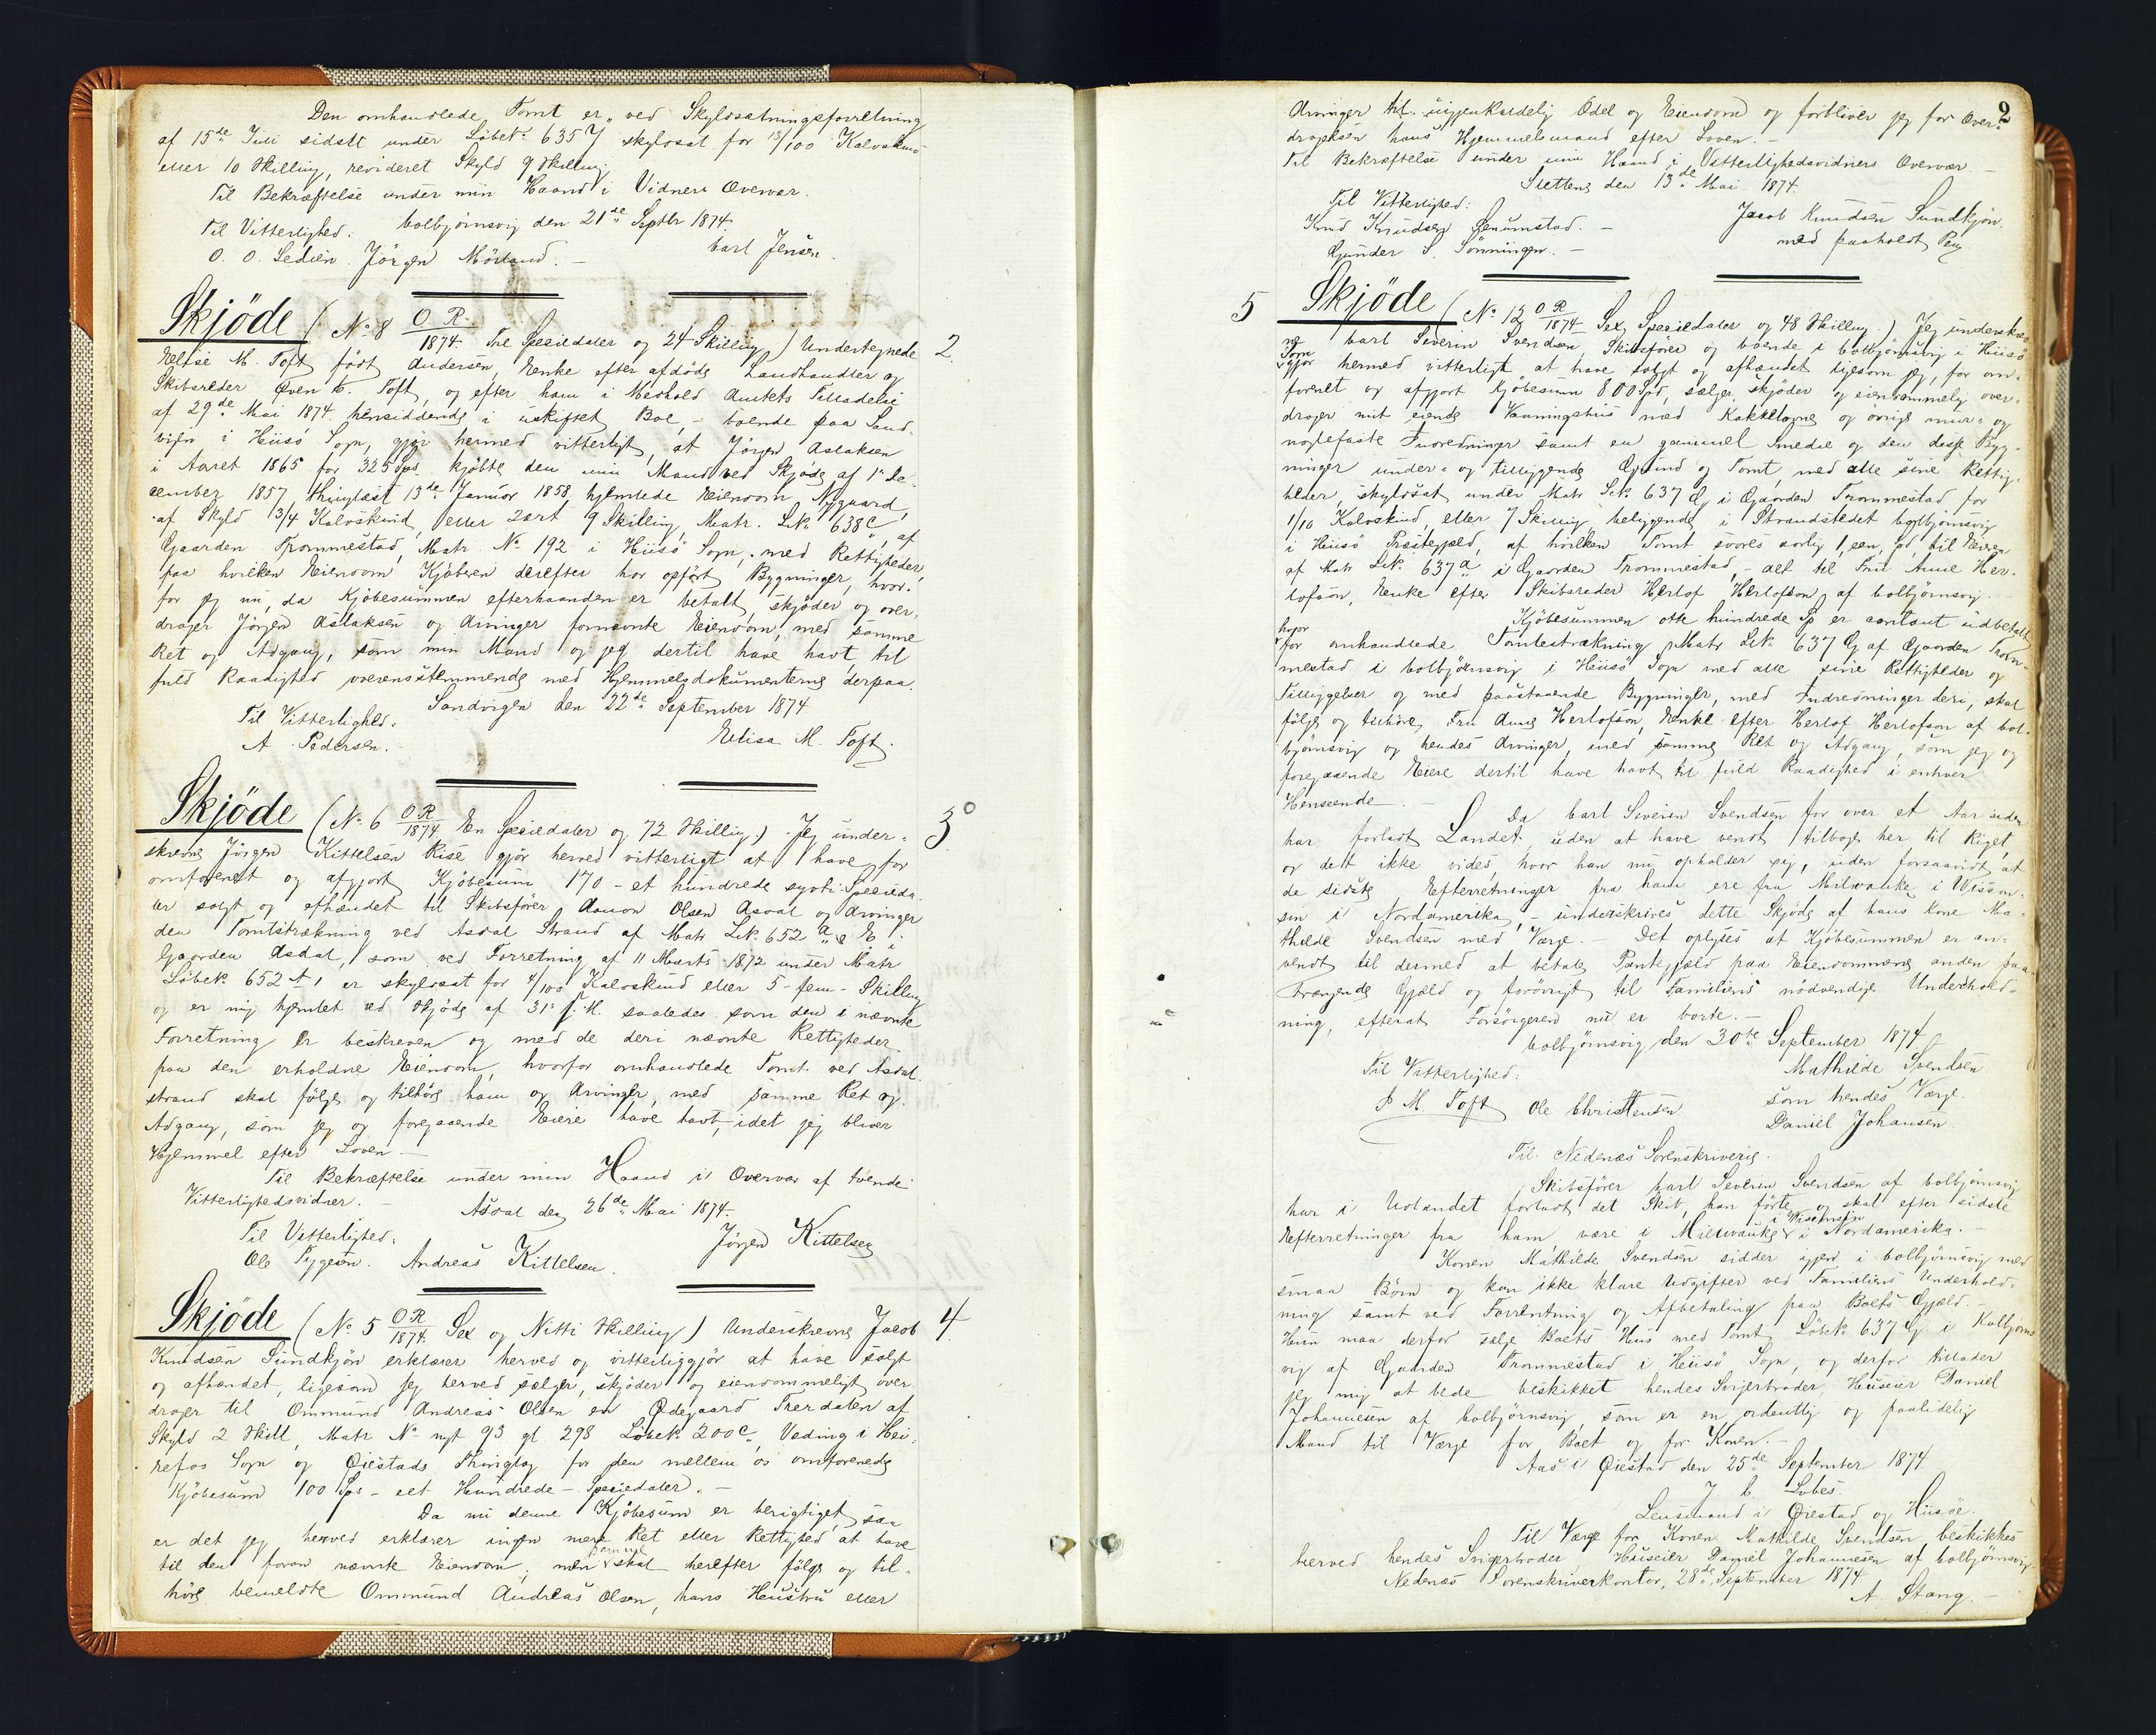 Den omhandlede Tomt er ved Skyldsætningsforretning
af 15de Juli sidstl under Löbe№ 635 skyldsat for 13/100 Kalvskind
eller 10 Skilling, revideret Skyld 9 Skilling
Til Bekræftelse under min Haand i Vidners Overvær.
Colbjörnsvig den 21de Septbr 1874.
Til Vitterlighed: Carl Jensen.
O. O. Sedien. Jörgen Mörland. –
Skjöde (№ 8 O.R./1874. Tre Speciedaler og 24 Skilling) Undertegnede 2.
Elise M. Toft födt Andersen, Enke efter afdöde Landhandler og
Skibsreder Even C. Toft, og efter ham i Medhold Amtets Tilladelse
af 29de Mai 1874 hensiddende i uskiftet Boe, – boende paa Sand-
vigen i Hiisö Sogn, gjör hermed vitterligt, at Jörgen Aslaksen
i Aaret 1865 for 325 Sps. kjöbte den min Mand ved Skjöde af 1ste De-
cember 1857, thinglæst 13de Januar 1858, hjemlede Eiendom Nygaard,
af Skyld 3/4 Kalvskind, eller 2 ort 9 Skilling, Matr. L№ 638c, af
Gaarden Trommestad, Matr. № 192 i Hiisö Sogn, med Rettigheder,
paa hvilken Eiendom Kjöberen derefter har opfört Bygninger, hvor-
for jeg nu, da Kjöbesummen efterhaanden er betalt, skjöder og over-
drager Jörgen Aslaksen og Arvinger fornævnte Eiendom, med samme
Ret og Adgang, som min Mand og jeg dertil have havt, til
fuld Raadighed overensstemmende med Hjemmelsdokumenterne derpaa.
Sandvigen den 22de September 1874
Til Vitterlighed: Elisa M. Toft.
A. Pedersen.
Skjöde (№ 6 O.R/1874, En Speciedaler og 72 Skilling.) Jeg under- 3
skrevne Jörgen Kittelsen Rise gjör herved vitterligt at have for
omforenet og afgjort Kjöbesum 170 – et hundrede sytti Specieda-
ler solgt og afhændet til Skibsförer Aanon Olsen Asdal og Arvinger
den Tomtstrækning ved Asdal Strand af Matr L№ 652 a & E i
Gaarden Asdal, som ved Forretning af 11 Marts 1872 under Matr
Löbe№ 652 t, er skyldsat for 4/100 Kalvskind eller 5 – fem – Skilling
og er mig hjemlet ved Skjöde af 31. f. M. saaledes som den i nævnte
Forretning er beskreven og med de deri nævnte Rettigheder
paa den erholdne Eiendom, hvorfor omhandlede Tomt ved Asdal-
strand skal fölge og tilhöre ham og Arvinger, med samme Ret og
Adgang, som jeg og foregaaende Eiere have havt, idet jeg bliver
Hjemmel efter Loven –
Til Bekræftelse under min Haand i Overvær af tvende
Vitterlighedsvidner. – Asdal den 26de Mai 1874.
Til Vitterlighed: Jörgen Kittelsen
Ole Tygesen. Andreas Kittelsen.
Skjöde (№ 5 O.R/1874. Sex og Nitti Skilling) Underskrevne Jacob 4
Knudsen Sundkjön erklærer herved og vitterliggjör at have solgt
og afhændet, ligesom jeg herved sælger, skjöder og eiendommeligt over-
drager til Ommund Andreas Olsen en Ödegaard Trerdalen af
Skyld 2 Skill, Matr № nyt 93 gl 298 Löbe№ 200c, Veding i Hei-
refos Sogn og Öiestads Thinglag for den mellem os omforenede
Kjöbesum 100 Sps – eet Hundrede – Speciedaler. –
Da nu denne Kjöbesum er berigtiget, saa
er det jeg herved erklærer ingen mere Ret eller Rettighed at have
til den foran nævnte Eiendom, men samme skal herefter fölge og til-
höre bemeldte Ommund Andreas Olsen, hans Hustru eller
2
Arvinger til uigjenkaldelig Odel og Eiendom og forbliver jeg for Over-
dragelsen hans Hjemmelsmand efter Loven. –
Til Bekræftelse under min Haand i Vitterlighedsvidners Overvær –
Slettene den 13de Mai 1874.
Til Vitterlighed: Jacob Knudsen Sundkjön.
Knud Knudsen Honumstad. – med paaholdt Pen
Gunder S. Sönningen. –
5 Skjöde (№ 12 O.R/1874 Sex Speciedaler og 48 Skilling.) Jeg underskrev-
ne Carl Severin Svendsen, Skibsförer og boende i Colbjörnsvig i Hiisö
Sogn gjör hermed vitterligt at have solgt og afhændet ligesom jeg, for om-
forenet og afgjort Kjöbesum 800 Spd, sælger, skjöder og eiendommelig over-
drager mit eiende Vaaningshus med Kakkelovne og övrige mur- og
naglefaste Indredninger samt en gammel Smedie og den disse Byg-
ninger under- og tilliggende Grund og Tomt, med alle sine Rettig-
heder, skyldsat under Matr L№ 637 G i Gaarden Trommestad for
1/10 Kalvskind, eller 7 Skilling, beliggende i Strandstedet Colbjörnsvig
i Hiisö Præstegjeld, af hvilken Tomt svares aarlig 1, een, Spd, til Eieren
af Matr L№ 637 a i Gaarden Trommestad, – alt til Fru Anne Her-
lofson, Enke efter Skibsreder Herlof Herlofson af Colbjörnsvig.
Kjöbesummen otte hundrede Sp er contant udbetalt
hvorfor omhandlede Tomtestrækning Matr L№ 637 G af Gaarden Trom-
mestad i Colbjörnsvig i Hiisö Sogn med alle sine Rettigheder og
Tilliggelser og med paastaaende Bygninger, med Indredninger deri, skal
fölge og tilhöre Fru Anne Herlofson, Enke efter Herlof Herlofson af Col-
björnsvig og hendes Arvinger, med samme Ret og Adgang, som jeg og
foregaaende Eiere dertil have havt til fuld Raadighed i enhver
Henseende. –
Da Carl Severin Svendsen for over et Aar siden
har forladt Landet uden at have vendt tilbage her til Riget,
og det ikke vides, hvor han nu opholder sig, uden forsaavidt at
de sidste Efterretninger fra ham ere fra Milwauke i Wiscon-
sin i Nordamerika, – underskrives dette Skjöde af hans Kone Ma-
thilde Svendsen med Værge. – Det oplyses at Kjöbesummen er an-
vendt til dermed at betale Pantegjæld paa Eiendommene anden paa-
trængende Gjæld og forövrigt til Familiens nödvendige Underhold-
ning, efterat Forsörgeren nu er borte. –
Colbjörnsvig den 30te September 1874
Til Vitterlighed: Mathilde Svendsen
P M. Toft Ole Christensen. som hendes Værge.
Daniel Johansen
Til Nedenæs Sorenskriveri.
Skibsförer Carl Severin Svendsen af Colbjörnsvig
har i Udlandet forladt det Skib, han förte, og skal efter sidste
Efterretninger fra ham være i Milwauke i Wisconsin i Nordamerika. –
Konen Mathilde Svendsen sidder igjen i Colbjörnsvig med
smaa Börn og kan ikke klare Udgifter ved Familiens Underhold-
ning samt ved Forrentning og Afbetaling paa Boets Gjæld –
Hun maa derfor sælge Boets Hus med Tomt Löbe№ 637 G i Kolbjörns
vig af Gaarden Trommestad i Hiisö Sogn, og derfor tillader
jeg mig at bede beskikket hendes Svigerbroder, Huseier Daniel
Johannesen af Colbjörnsvig, som er en ordentlig og paalidelig
Mand til Værge for Boet og for Konen. –
Aas i Öiestad den 25de September 1874
J. C. Lobes.
Lensmand i Öiestad og Hiisöe.
Til Værge for Konen Mathilde Svendsen beskikkes
herved hendes Svigerbroder Huseier Daniel Johannesen af Colbjörnsvig.
Nedenæs Sorenskriverkontor, 28de September 1874
A. Stang. –